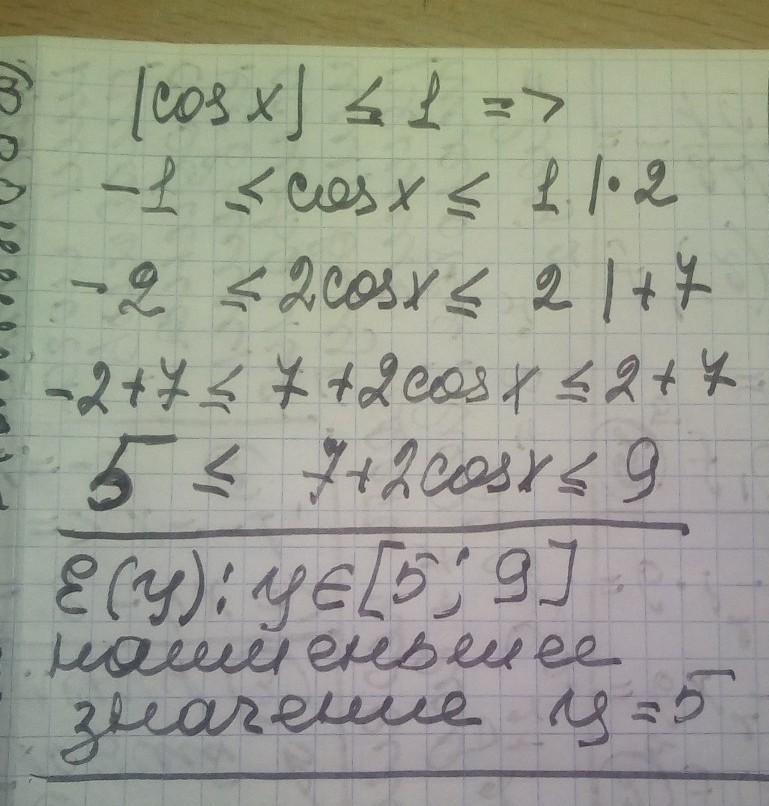 |cos x| ≤ 1 =>
-1 ≤ cos x ≤ 1 |·2
-2 ≤ 2cos x ≤ 2 |+7
-2+7 ≤ 7+2cos x ≤ 2+7
5 ≤ 7+2cos x ≤ 9
E(y): y∈[5; 9]
наименьшее
значение y=5